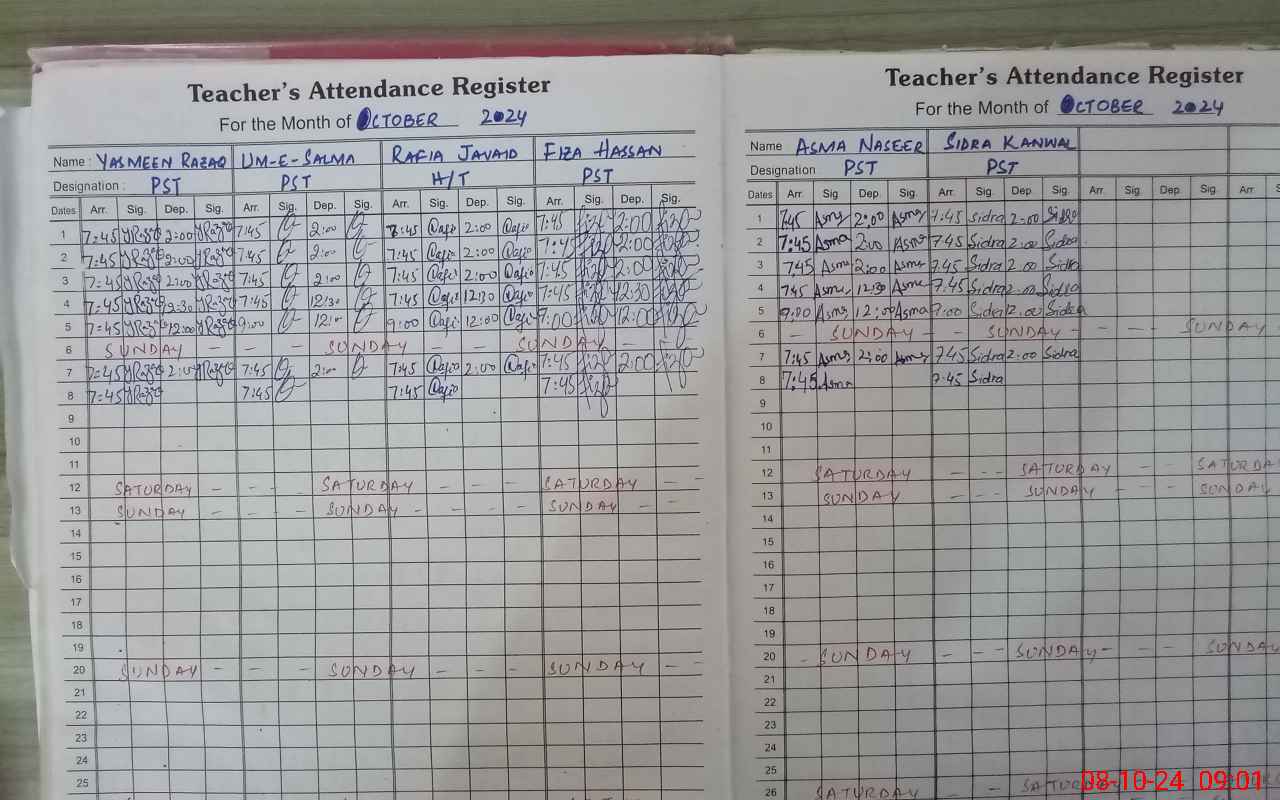 Teacher's Attendance Register
For the Month of OCTOBER 2024
Name : YASMEEN RAZAQ UM-E-SALMA RAFIA JAVAID FIZA HASSAN
Designation : PST PST H/T PST
Dates Arr. Sig. Dep. Sig. Arr. Sig. Dep. Sig. Arr. Sig. Dep. Sig. Arr. Sig. Dep. Sig.
1 7:45 2:00 7:45 2:00 7:45 2:00 7:45 2:00
2 7:45 2:00 7:45 2:00 7:45 2:00 7:45 2:00
3 7:45 2:00 7:45 2:00 7:45 2:00 7:45 2:00
4 7:45 12:30 7:45 12:30 7:45 12:30 7:45 12:30
5 7:45 12:00 9:00 12:00 9:00 12:00 7:00 12:00
6 SUNDAY - - SUNDAY - - SUNDAY - -
7 7:45 2:00 7:45 2:00 7:45 2:00 7:45 2:00
8 7:45 7:45 7:45 7:45
9
10
11
12 SATURDAY - - - SATURDAY - - - SATURDAY - -
13 SUNDAY - - - SUNDAY - - - SUNDAY - -
14
15
16
17
18
19
20 SUNDAY - - - SUNDAY - - - SUNDAY - -
21
22
23
24
25
Teacher's Attendance Register
For the Month of OCTOBER 2024
Name ASMA NASEER SIDRA KANWAL
Designation : PST PST
Dates Arr. Sig Dep. Sig. Arr. Sig. Dep. Sig. Arr. Sig. Dep. Sig. Arr. S
1 7:45 Asma 2:00 Asma 7:45 Sidra 2:00 Sidra
2 7:45 Asma 2:00 Asma 7:45 Sidra 2:00 Sidra
3 7:45 Asma 2:00 Asma 7:45 Sidra 2:00 Sidra
4 7:45 Asma 12:30 Asma 7:45 Sidra 2:00 Sidra
5 9:00 Asma 12:00 Asma 7:00 Sidra 12:00 Sidra
6 - SUNDAY - - SUNDAY - - - SUNDAY
7 7:45 Asma 2:00 Asma 7:45 Sidra 2:00 Sidra
8 7:45 Asma 7:45 Sidra
9
10
11
12 SATURDAY - - - SATURDAY - - - SATURDA
13 SUNDAY - - - SUNDAY - - - SUNDAY
14
15
16
17
18
19
20 - SUNDAY - - - SUNDAY - - - SUNDAY
21
22
23
24
25
26 SATURDAY - - - SATURDAY
08-10-24 09:01